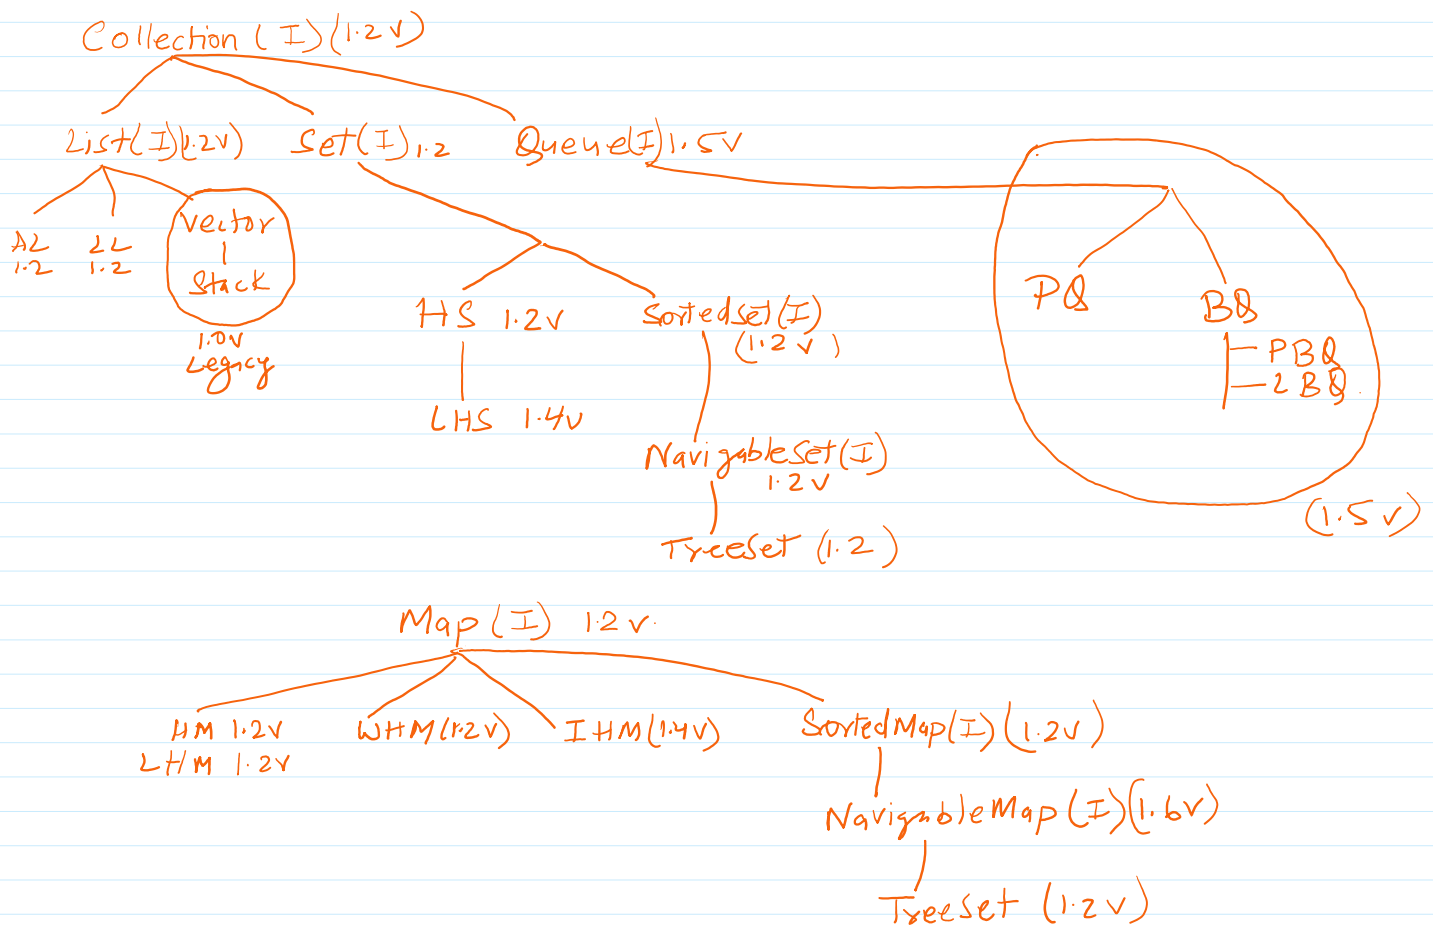 Collection (I) (1.2 V)
List(I)(1.2V) Set(I) 1.2 Queue(I) 1.5V
AL LL Vector
1.2 1.2
Stack
1.0V
Legacy
HS 1.2V SortedSet(I)
(1.2 V)
LHS 1.4V
NavigableSet(I)
1.2V
TreeSet (1.2)
PQ BQ
PBQ
LBQ
(1.5 V)
Map (I) 1.2 V.
HM 1.2V WHM(1.2V) IHM(1.4V) SortedMap(I) (1.2V)
LHM 1.2V
NavigableMap (I) (1.6V)
TreeSet (1.2V)